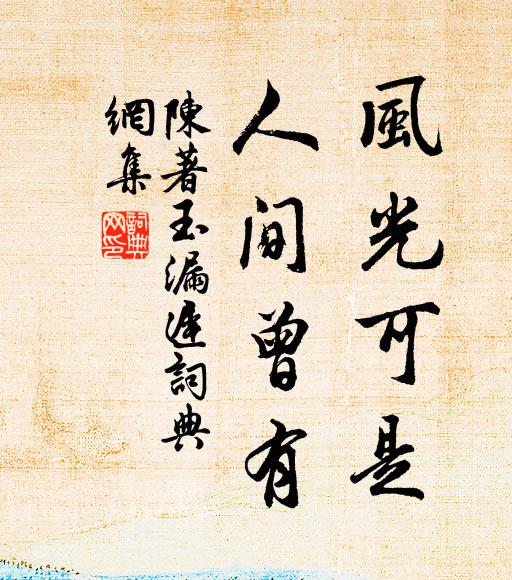 風光可是
人間曾有
陳著玉漏遲詞典
網集
詞典
网印